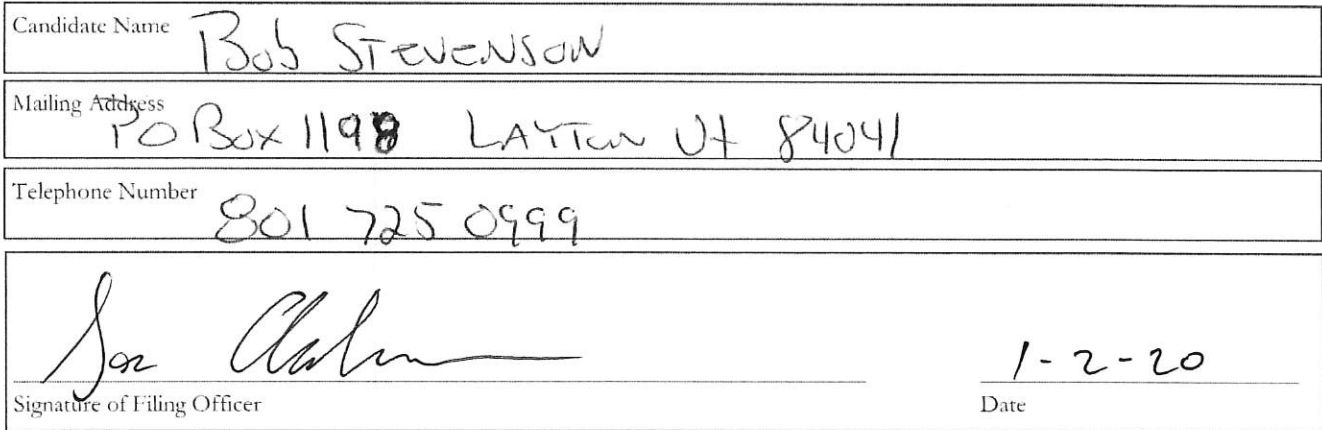 Candidate Name Bob Stevenson
Mailing Address
PO Box 1198 LAYTON Ut 84041
Telephone Number 801 725 0999
1-2-20
Signature of Filing Officer Date